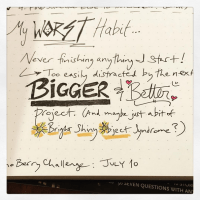 My WORST Habit...
Never finishing anything I start!
Too easily distracted by the next
BIGGER & Better
project. (And maybe just a bit of
Bright Shiny Object Syndrome?)
Berry Challenge: JULY 10
SEVEN QUESTIONS WITH AN